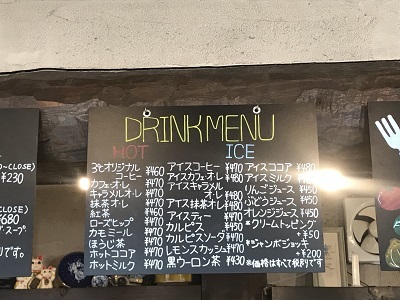 DRINK MENU
HOT
3tオリジナル
コーヒー ¥460
カフェオレ ¥470
キャラメルオレ ¥470
抹茶オレ ¥470
紅茶 ¥460
ローズヒップ ¥470
カモミール ¥470
ほうじ茶 ¥470
ホットココア ¥470
ホットミルク ¥470
ICE
アイスコーヒー ¥470
アイスカフェオレ ¥480
アイスキャラメル
オレ ¥480
アイス抹茶オレ ¥480
アイスティー ¥470
カルピス ¥450
カルピスソーダ ¥470
レモンスカッシュ ¥470
黒ウーロン茶 ¥430
アイスココア ¥480
アイスミルク ¥450
りんごジュース ¥450
ぶどうジュース ¥450
オレンジジュース ¥450
*クリームトッピング
+¥50
*ジャンボジョッキ
+¥200
※価格はすべて税別です
O-CLOSE)
¥230
CLOSE)
¥680
スープ
です。